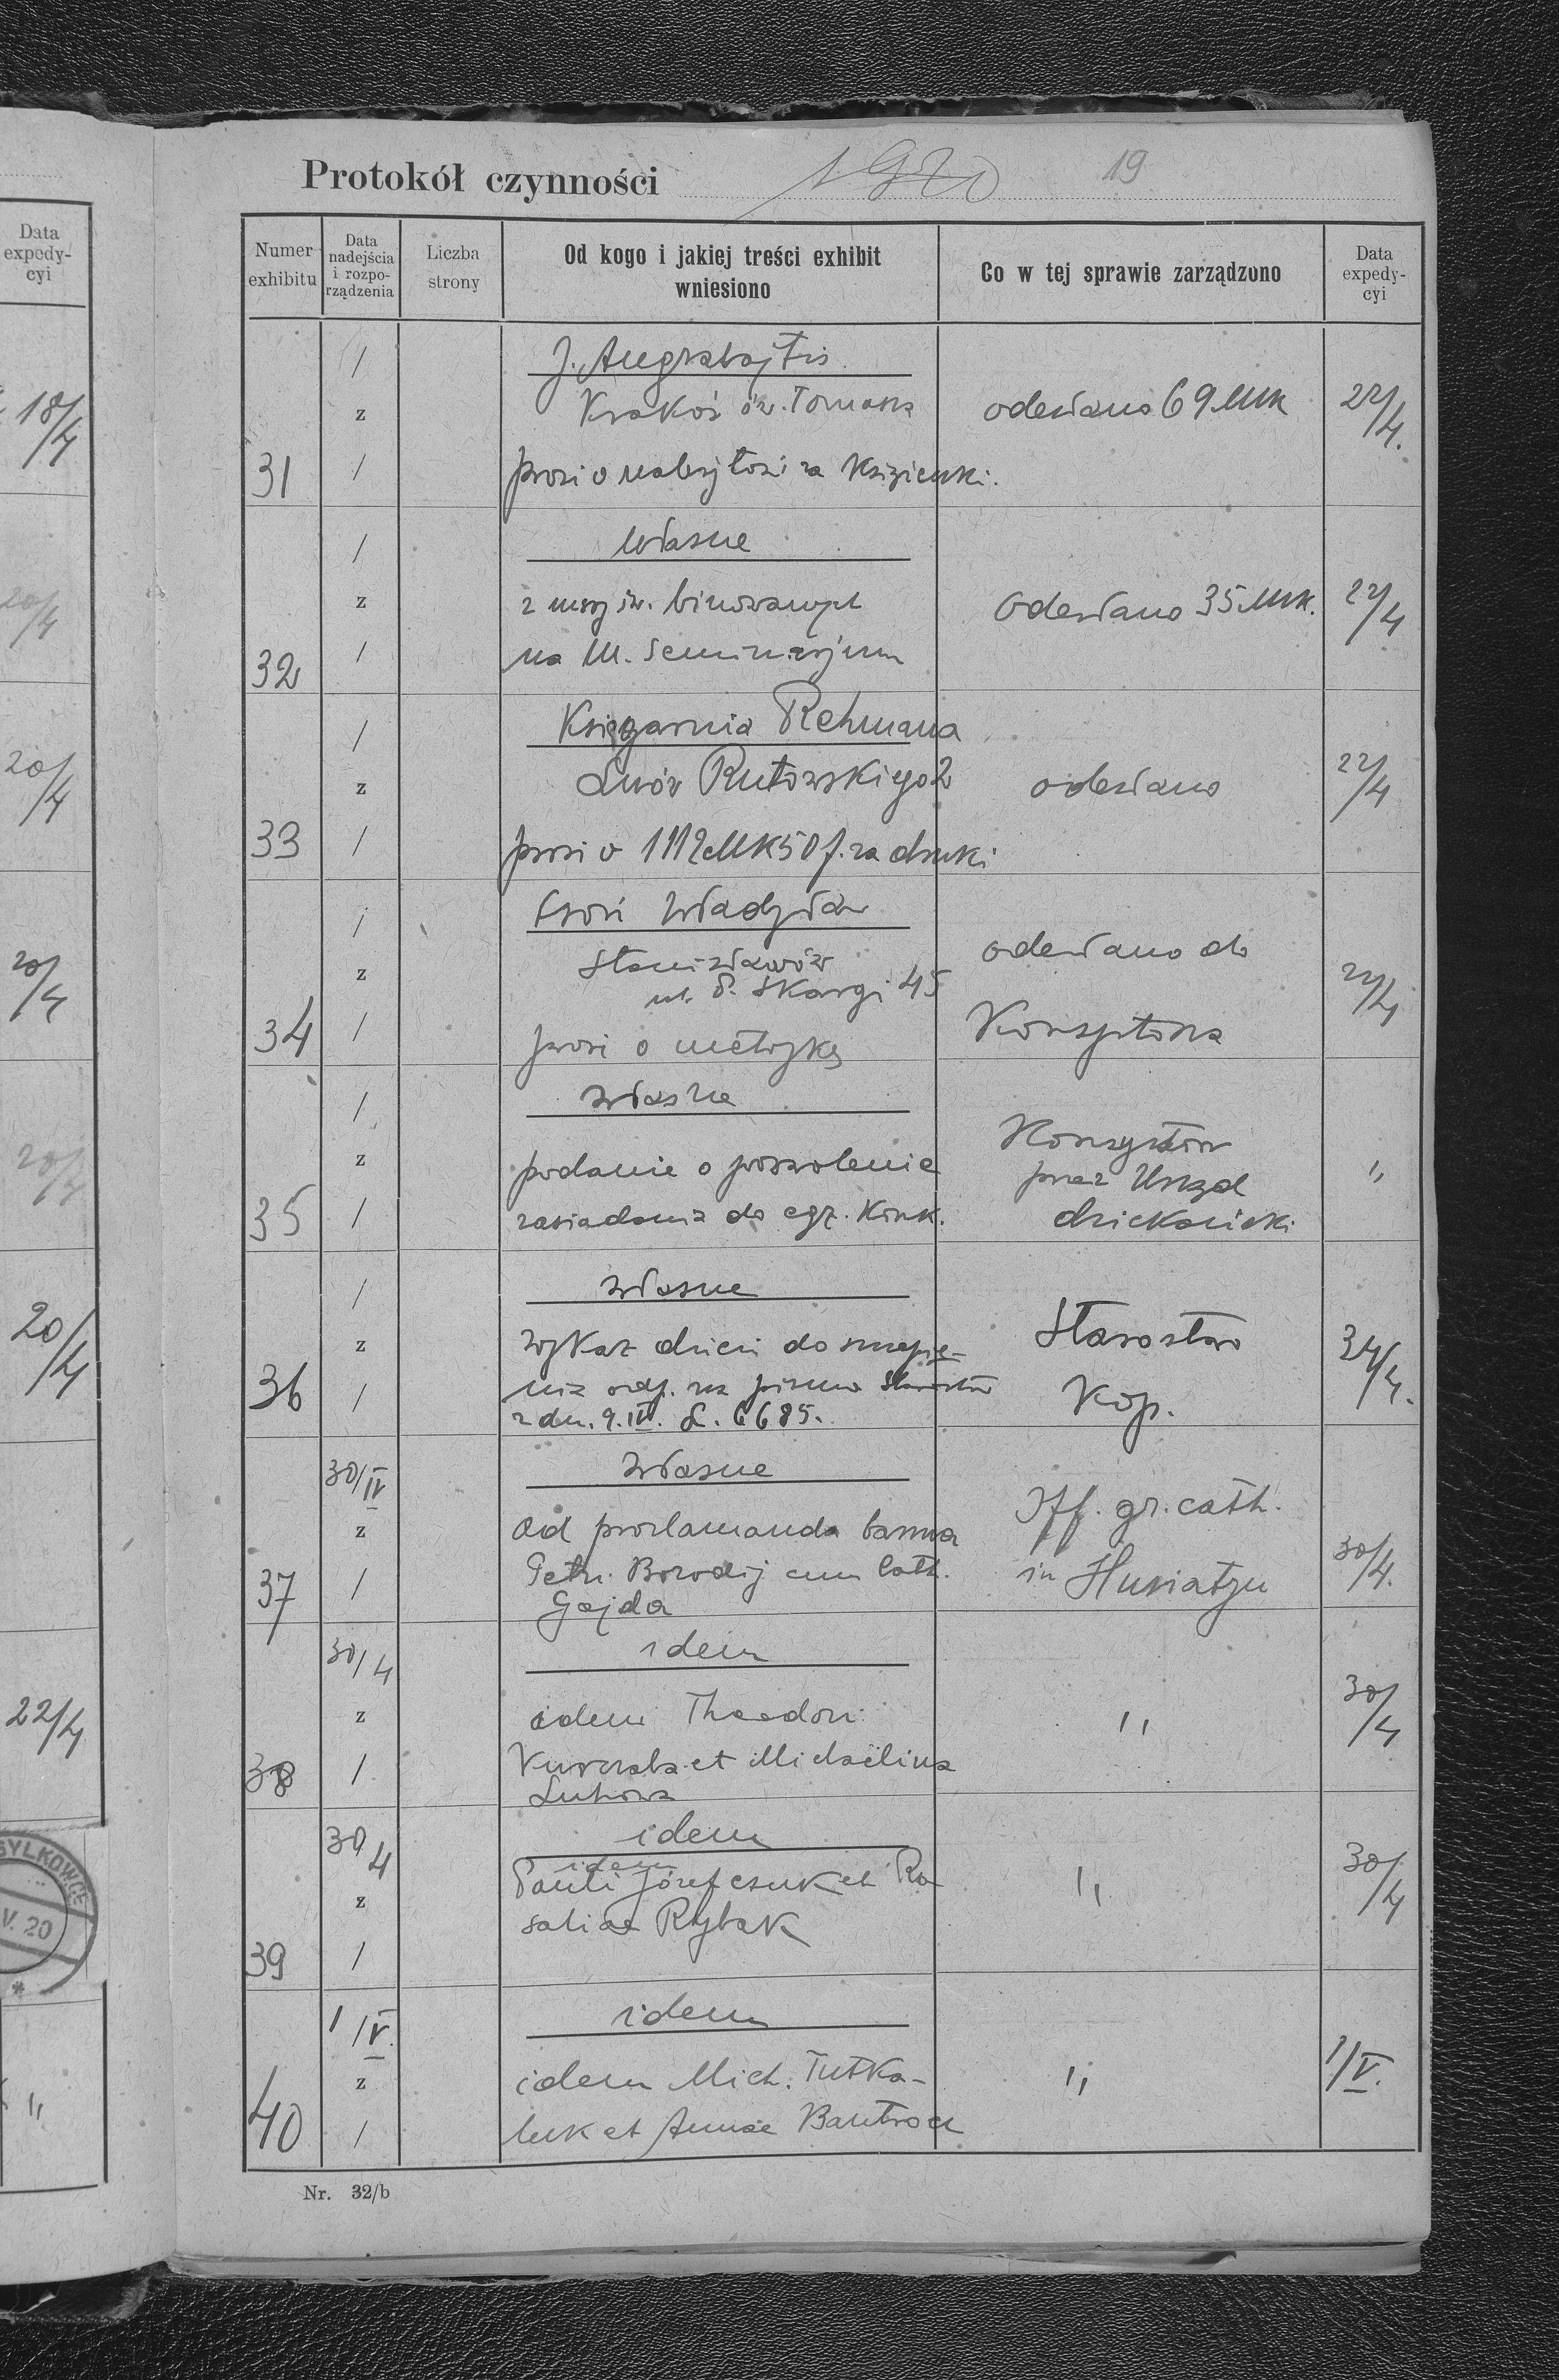 Data
expedy-
cyi
18/4
20/4
20/4
20/4
20/4
20/4
22/4
SYŁKOWCE
V. 20
*
"
Protokół czynności 1920 19
Numer
exhibitu
Data
nadejścia
i rozpo-
rządzenia
Liczba
strony
Od kogo i jakiej treści exhibit
wniesiono
Co w tej sprawie zarządzono
Data
expedy-
cyi
31
/
z
/
J.
Kraków św. Tomasza
prosi o należytość za
odesłano 69 Mk
22/4.
32
/
z
/
własne
z mszy św. binowanych
na M. Seminarjum
Odesłano 35 Mk.
22/4
33
/
z
/
Księgarnia Rehmana
Lwów Rutowskiego 2
prosi o 1112 Mk 50 f. za druki
odesłano
22/4
34
/
z
/
Władysław
Stanisławów
ul. P. Skargi 45
prosi o metrykę
odesłano do
Konsystorza
22/4
35
/
z
/
własne
podanie o pozwolenie
zasiadania do egz. Konk.
Konsystorz
przez Urząd
dziekański
"
36
/
z
/
własne
wykaz dzieci do szczepie-
nia odp. na pismo Starostwa
z dn. 9.IV. L. 6685.
Starostwo
Kop.
24/4.
37
30/IV
z
/
własne
ad proclamanda banna
Petri Borodij cum Cath.
Gajda
Off. gr. cath.
in Husiatyn
30/4.
38
30/4
z
/
idem
idem Theodori
et Michaelina
"
30/4
39
30/4
z
/
idem
idem
Pauli Józefczuk et Ro-
saliae Rybak
"
30/4
40
1/V.
z
/
idem
idem Mich. Tutka-
luk et Annae
"
1/V.
Nr. 32/b